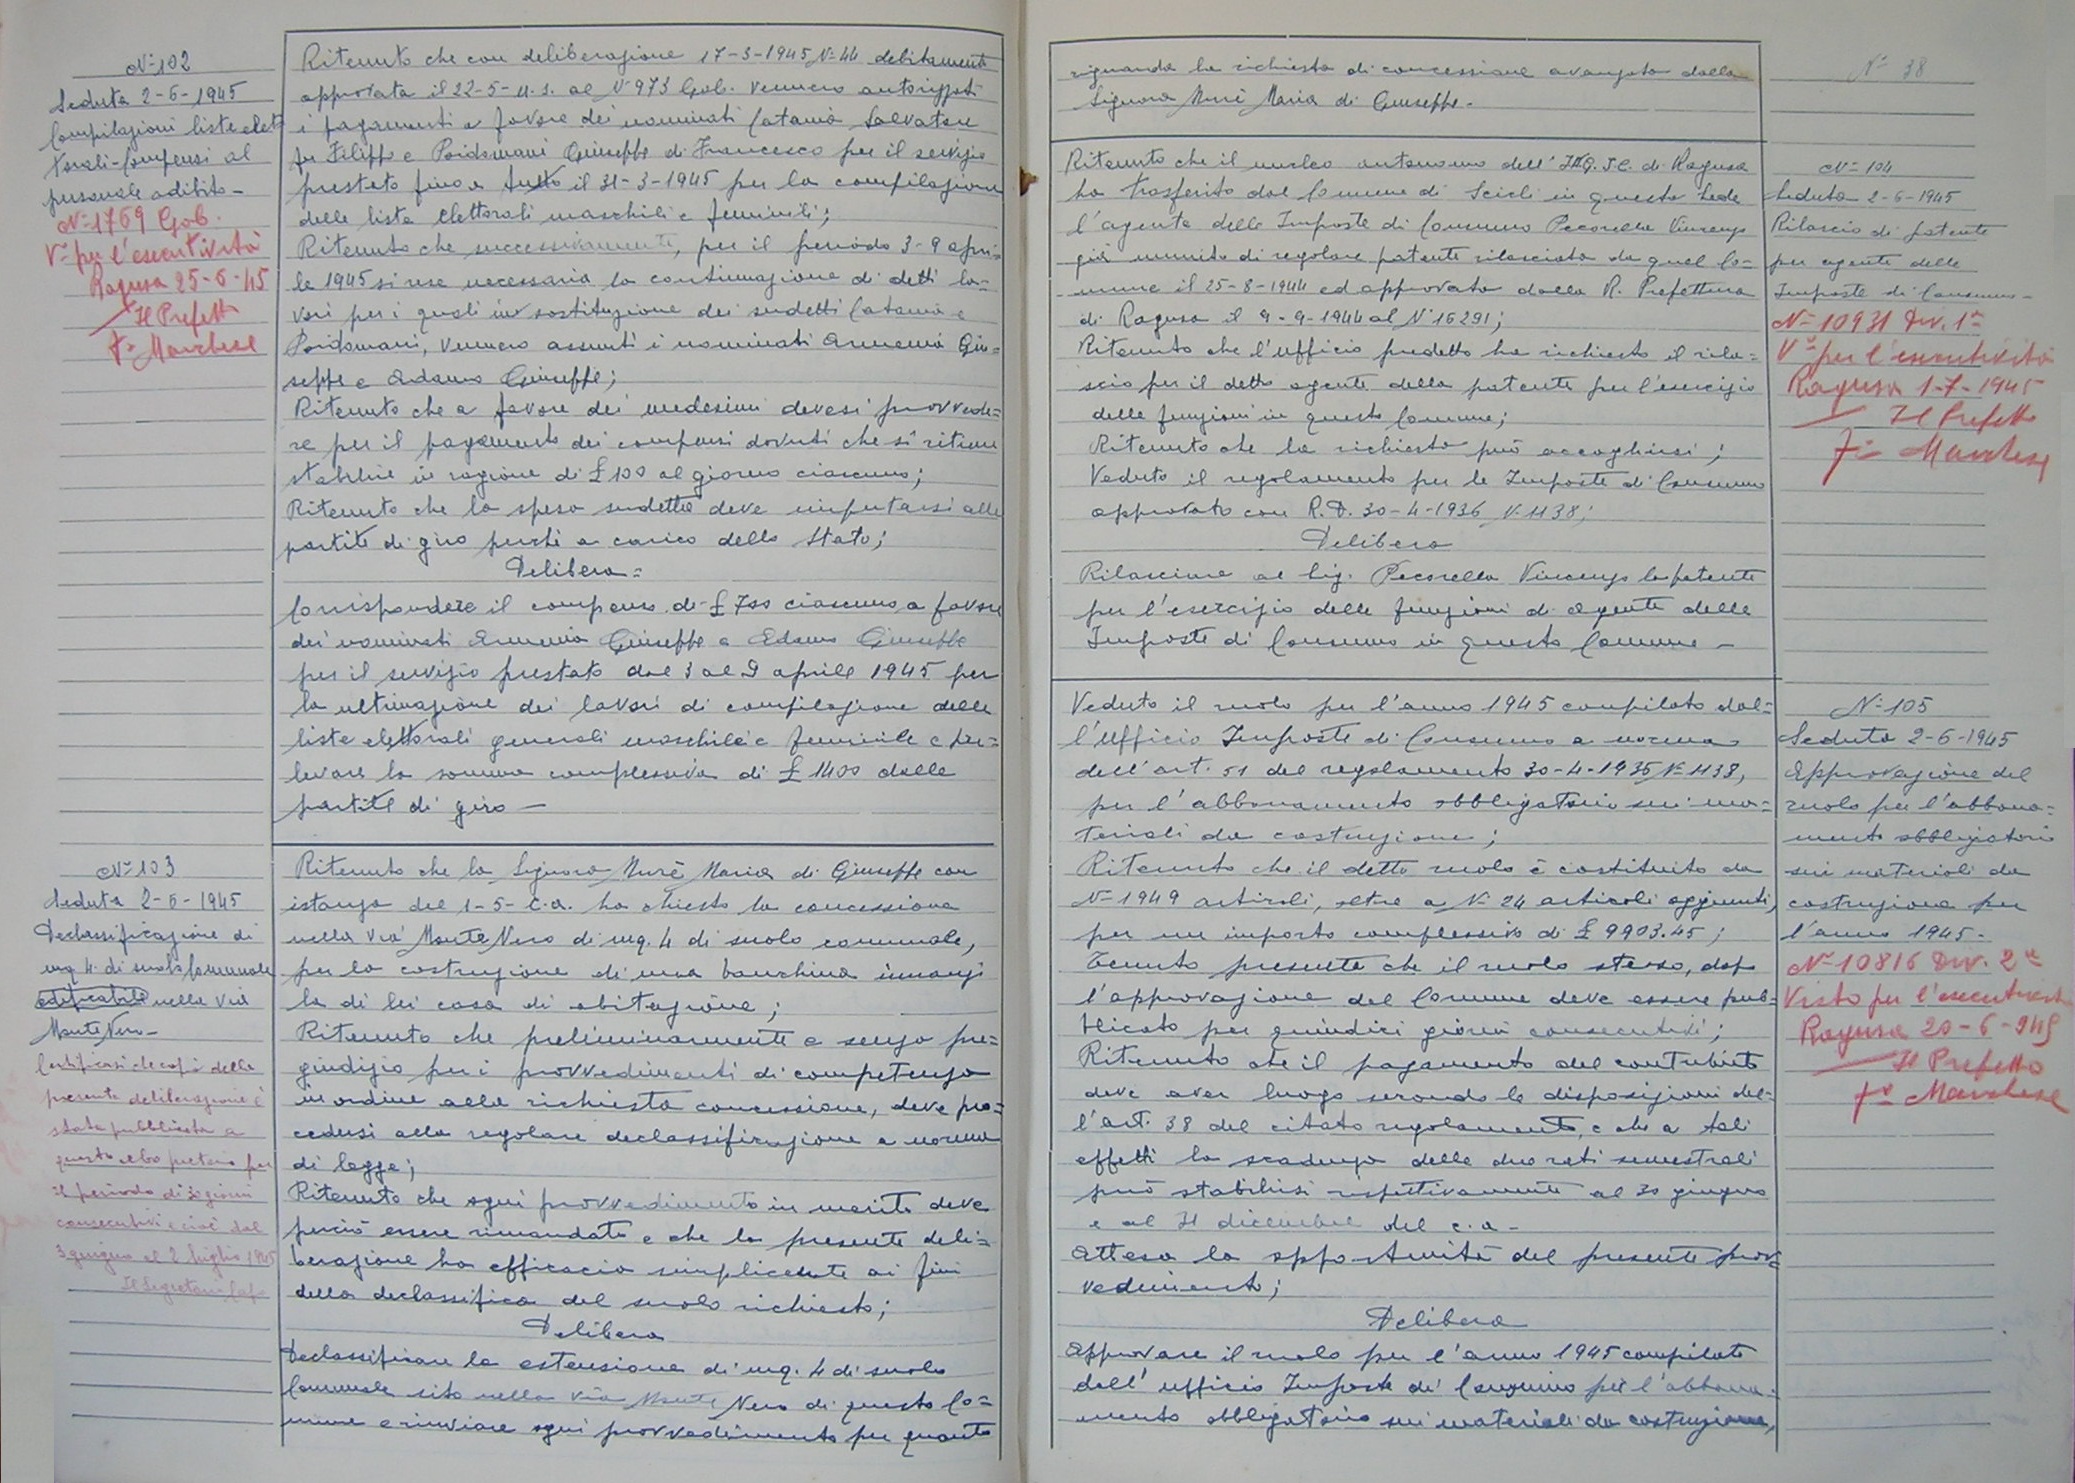 N° 102
Seduta 2-6-1945
Compilazioni liste elet=
torali - Compensi al
personale adibito -
N° 1769 Gab.
V° per l'esecutività
Ragusa 25-6-45
Il Prefetto
f° Marchese
Ritenuto che con deliberazione 17-3-1945 N° 44 debitamente
approvata il 22-5-u.s. al N° 973 Gab. vennero autorizzati
i pagamenti a favore dei nominati Catania Salvatore
fu Filippo e Poidomani Giuseppe di Francesco per il servizio
prestato fino a tutto il 31-3-1945 per la compilazione
delle liste elettorali maschili e femminili;
Ritenuto che successivamente, per il periodo 3-9 apri=
le 1945 si rese necessaria la continuazione di detti la=
vori per i quali in sostituzione dei sudetti Catania e
Poidomani, vennero assunti i nominati Armenia Giu=
seppe e Adamo Giuseppe;
Ritenuto che a favore dei medesimi devesi provvede=
re per il pagamento dei compensi dovuti che si ritiene
stabilire in ragione di £ 100 al giorno ciascuno;
Ritenuto che la spesa sudetta deve imputarsi alle
partite di giro perché a carico dello Stato;
Delibera =
Corrispondere il compenso di £ 700 ciascuno a favore
dei nominati Armenia Giuseppe e Adamo Giuseppe
per il servizio prestato dal 3 al 9 aprile 1945 per
la ultimazione dei lavori di compilazione delle
liste elettorali generali maschile e femminile e pre=
levare la somma complessiva di £ 1400 dalle
partite di giro -
N° 103
Seduta 2-6-1945
Declassificazione di
mq. 4 di suolo Comunale
edificabile nella via
Monte Nero -
Certificasi che copia della
presente deliberazione è
stata pubblicata a
questo albo pretorio per
il periodo di 30 giorni
consecutivi e cioè dal
3 giugno al 2 luglio 1945
Il Segretario Capo
Ritenuto che la Signora Nurè Maria di Giuseppe con
istanza del 1-5-c.a. ha chiesto la concessione
nella via Monte Nero di mq. 4 di suolo comunale,
per la costruzione di una banchina innanzi
la di lei casa di abitazione;
Ritenuto che preliminarmente e senza pre=
giudizio per i provvedimenti di competenza
in ordine alla richiesta concessione, deve pro=
cedersi alla regolare declassificazione a norma
di legge;
Ritenuto che ogni provvedimento in merito deve
perciò essere rimandato e che la presente deli=
berazione ha efficacia semplicemente ai fini
della declassifica del suolo richiesto;
Delibera
Declassificare la estensione di mq. 4 di suolo
Comunale sito nella via Monte Nero di questo Co=
mune e rinviare ogni provvedimento per quanto
N° 38
riguarda la richiesta di concessione avanzata dalla
Signora Nurè Maria di Giuseppe -
Ritenuto che il nucleo autonomo dell' I.N.G.I.C. di Ragusa
ha trasferito dal Comune di Scicli in questa Sede
l'agente delle Imposte di Consumo Pecorella Vincenzo
già munito di regolare patente rilasciata da quel Co=
mune il 25-8-1944 ed approvata dalla R. Prefettura
di Ragusa il 9-9-1944 al N° 16291;
Ritenuto che l'ufficio predetto ha richiesto il rila=
scio per il detto agente della patente per l'esercizio
delle funzioni in questo Comune;
Ritenuto che la richiesta può accogliersi;
Veduto il regolamento per le Imposte di Consumo
approvato con R.D. 30-4-1936 N. 1138;
Delibera
Rilasciare al Sig. Pecorella Vincenzo la patente
per l'esercizio delle funzioni di agente delle
Imposte di Consumo in questo Comune -
N° 104
Seduta 2-6-1945
Rilascio di patente
per agente delle
Imposte di Consumo -
N° 10931 Div. 1ª
V° per l'esecutività
Ragusa 1-7-1945
Il Prefetto
f° Marchese
Veduto il ruolo per l'anno 1945 compilato dal=
l'Ufficio Imposte di Consumo a norma
dell'art. 51 del regolamento 30-4-1935 N° 1138,
per l'abbonamento obbligatorio sui ma=
teriali da costruzione;
Ritenuto che il detto ruolo è costituito da
N° 1949 articoli, oltre a N° 24 articoli aggiunti,
per un importo complessivo di £ 9903.45;
Tenuto presente che il ruolo stesso, dopo
l'approvazione del Comune deve essere pub=
blicato per quindici giorni consecutivi;
Ritenuto che il pagamento del contributo
deve aver luogo secondo le disposizioni del=
l'art. 38 del citato regolamento, e che a tali
effetti la scadenza delle due rate semestrali
può stabilirsi rispettivamente al 30 giugno
e al 31 dicembre del c.a -
Attesa la opportunità del presente prov=
vedimento;
Delibera
Approvare il ruolo per l'anno 1945 compilato
dall'ufficio Imposte di Consumo per l'abbona=
mento obbligatorio sui materiali da costruzione,
N° 105
Seduta 2-6-1945
Approvazione del
ruolo per l'abbona=
mento obbligatorio
sui materiali da
costruzione per
l'anno 1945 -
N° 10816 Div. 2ª
Visto per l'esecutività
Ragusa 20-6-945
Il Prefetto
f° Marchese